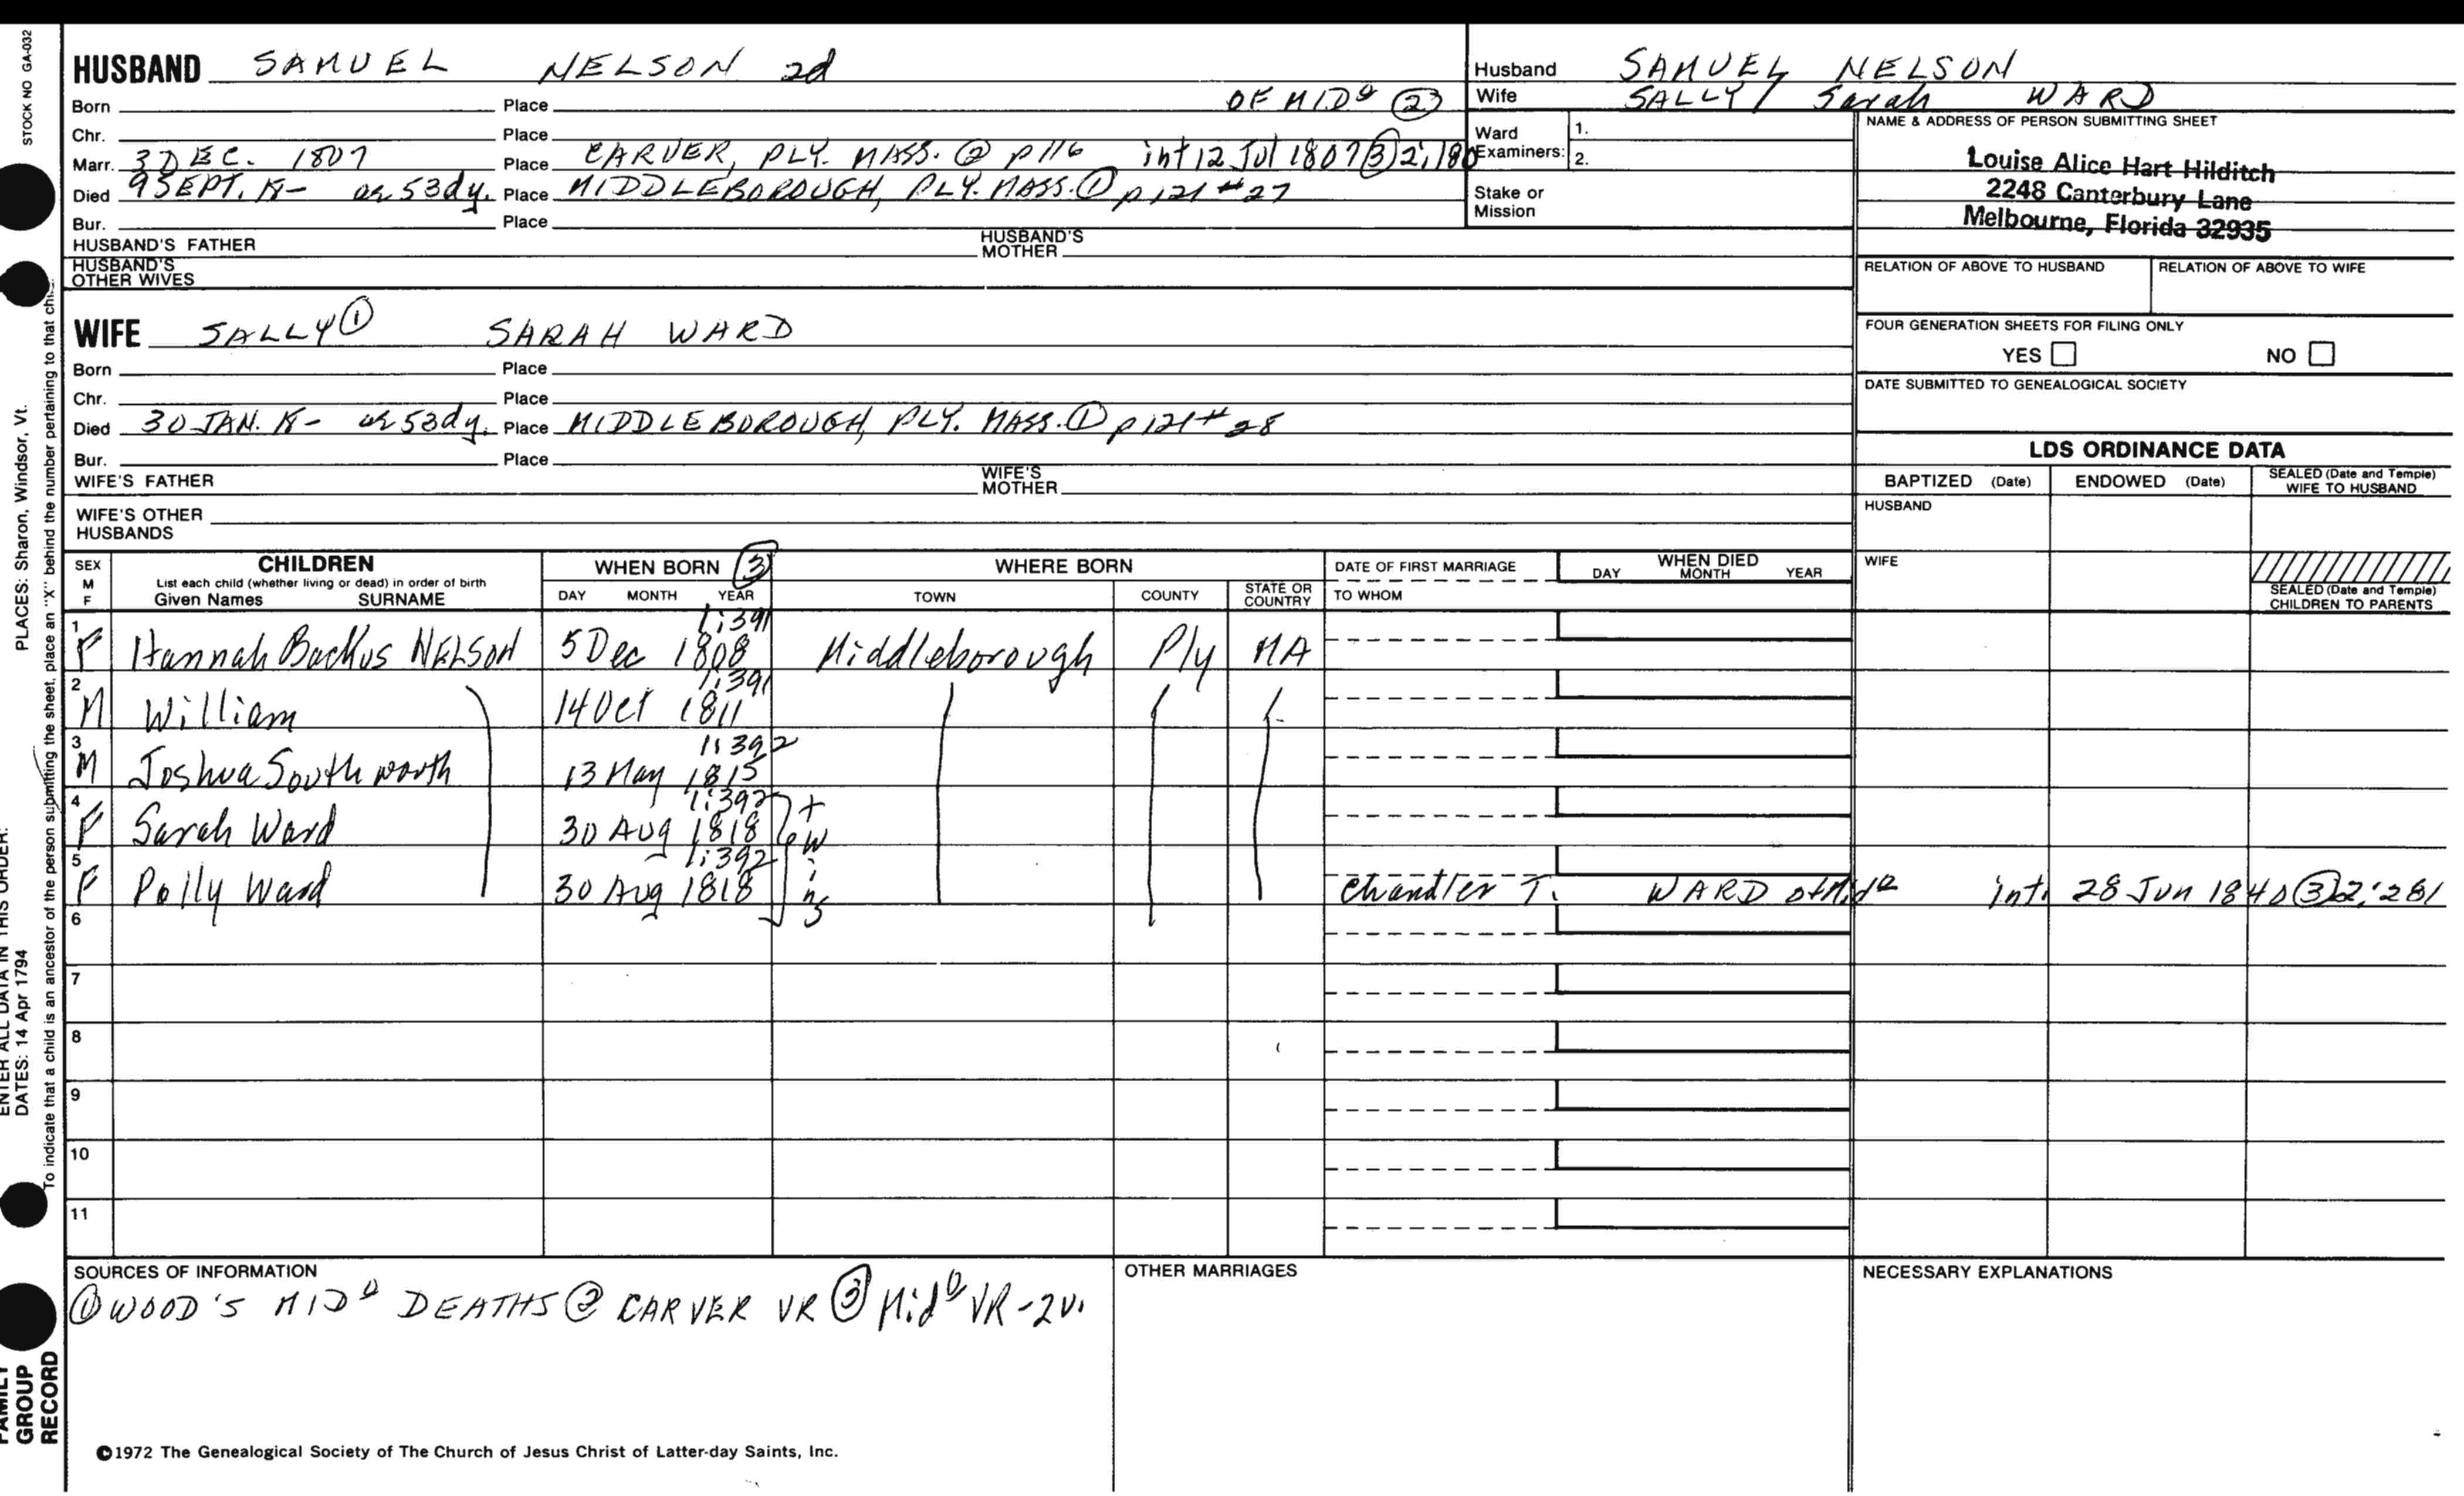 STOCK NO GA-032
PLACES: Sharon, Windsor, Vt.
ENTER ALL DATA IN THIS ORDER:
DATES: 14 Apr 1794
To indicate that a child is an ancestor of the person submitting the sheet, place an "X" behind the number pertaining to that
FAMILY GROUP RECORD
HUSBAND SAMUEL NELSON 2d
Born Place OF MIDº ②③
Chr. Place
Marr. 3 DEC. 1807 Place CARVER, PLY. MASS. ② p116 int 12 Jul 1807 ③ 2;180
Died 9 SEPT. 18- 53dy. Place MIDDLEBOROUGH, PLY. MASS. ① p121 #27
Bur. Place
HUSBAND'S FATHER HUSBAND'S MOTHER
HUSBAND'S OTHER WIVES
Husband SAMUEL NELSON
Wife SALLY / Sarah WARD
Ward Examiners: 1.
2.
Stake or Mission
NAME & ADDRESS OF PERSON SUBMITTING SHEET
Louise Alice Hart Hilditch
2248 Canterbury Lane
Melbourne, Florida 32935
RELATION OF ABOVE TO HUSBAND RELATION OF ABOVE TO WIFE
FOUR GENERATION SHEETS FOR FILING ONLY
YES NO
DATE SUBMITTED TO GENEALOGICAL SOCIETY
WIFE SALLY ① SARAH WARD
Born Place
Chr. Place
Died 30 JAN. 18- 53dy. Place MIDDLEBOROUGH, PLY. MASS. ① p121 #28
Bur. Place
WIFE'S FATHER WIFE'S MOTHER
WIFE'S OTHER HUSBANDS
LDS ORDINANCE DATA
BAPTIZED (Date) ENDOWED (Date) SEALED (Date and Temple) WIFE TO HUSBAND
HUSBAND
WIFE
SEALED (Date and Temple) CHILDREN TO PARENTS
SEX M F CHILDREN List each child (whether living or dead) in order of birth Given Names SURNAME
WHEN BORN ③ DAY MONTH YEAR
WHERE BORN TOWN COUNTY STATE OR COUNTRY
DATE OF FIRST MARRIAGE TO WHOM
WHEN DIED DAY MONTH YEAR
1 F Hannah Backus NELSON 5 Dec 1808 1:391 Middleborough Ply MA
2 M William 14 Oct 1811 1:391
3 M Joshua Southworth 13 May 1815 1:392
4 F Sarah Ward 30 Aug 1818 1:392 twins
5 F Polly Ward 30 Aug 1818 1:392 Chandler T. WARD of Midº int. 28 Jun 1840 ③ 2:281
6
7
8
9
10
11
SOURCES OF INFORMATION
① WOOD'S MIDº DEATHS ② CARVER VR ③ Midº VR-2v.
OTHER MARRIAGES
NECESSARY EXPLANATIONS
©1972 The Genealogical Society of The Church of Jesus Christ of Latter-day Saints, Inc.